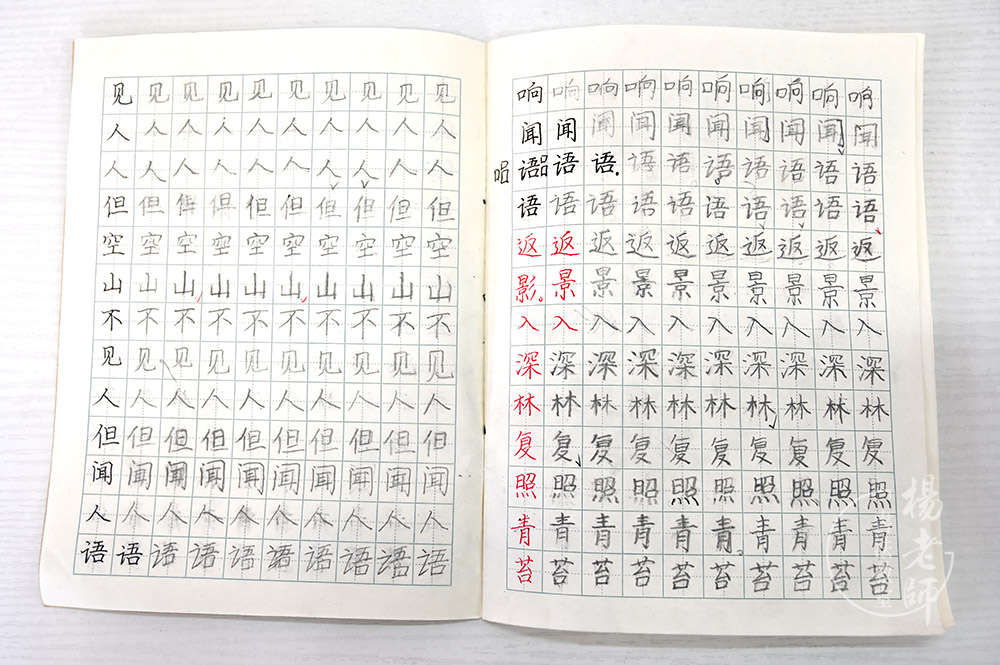 见见见见见见见见见见
人人人人人人人人人人
人人人人人人人人人人
但但但但但但但但但但
空空空空空空空空空空
山山山山山山山山山山
不不不不不不不不不不
见见见见见见见见见见
人人人人人人人人人人
但但但但但但但但但但
闻闻闻闻闻闻闻闻闻闻
人人人人人人人人人人
语语语语语语语语语语
响响响响响响响响响响
闻闻闻闻闻闻闻闻闻闻
语吕语语语语语语语语语
语语语语语语语语语语
返返返返返返返返返返
影。景景景景景景景景景
入入入入入入入入入入
深深深深深深深深深深
林林林林林林林林林林
复复复复复复复复复复
照照照照照照照照照照
青青青青青青青青青青
苔苔苔苔苔苔苔苔苔苔
楊老師